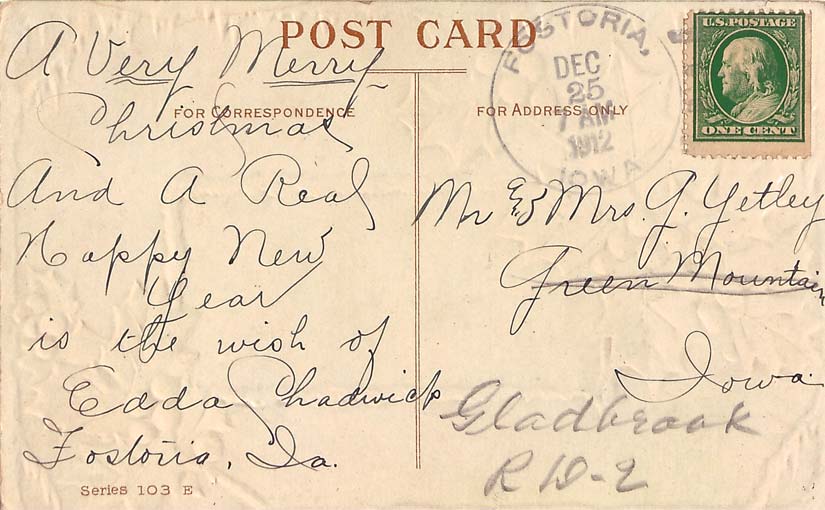 POST CARD
FOR CORRESPONDENCE
A Very Merry
Christmas
And A Real
Happy New
Year
is the wish of
Edda Shadwick
Fostoria, Ia.
Series 103 E
FOR ADDRESS ONLY
FOSTORIA,
DEC
25
7 AM
1912
IOWA
U.S. POSTAGE
ONE CENT
Mr & Mrs. J. Yetley
Green Mountain
Iowa.
Gladbrook
R D-2